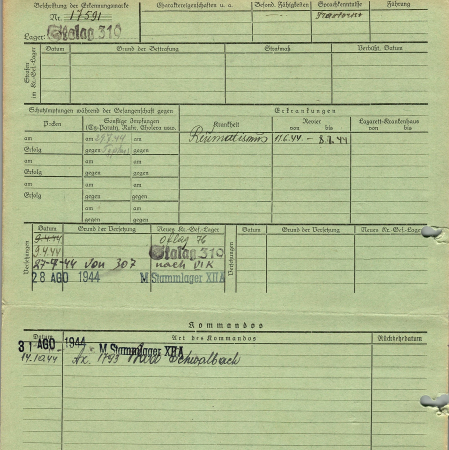 Beschriftung der Erkennungsmarke
Charaktereigenschaften u. a.
Besond. Fähigkeiten
Sprachkenntnisse
Führung
Nr. 17591
Lager: Stalag 310
Strafen im Kr.-Gef.-Lager
Datum
Grund der Bestrafung
Strafmaß
Verbüßt, Datum
Schutzimpfungen während der Gefangenschaft gegen
Erkrankungen
Pocken
Sonstige Impfungen
(Ty.-Paraty., Ruhr, Cholera usw.)
Krankheit
Revier
von bis
Lazarett-Krankenhaus
von bis
am
am
Reumatismus
11.6.44 – 8.7.44
Erfolg
gegen
am
am
Erfolg
gegen
am
am
Erfolg
gegen
am
am
Erfolg
gegen
am
am
gegen
gegen
am
am
gegen
gegen
Versetzungen
Datum
Grund der Versetzung
Neues Kr.-Gef.-Lager
Versetzungen
Datum
Grund der Versetzung
Neues Kr.-Gef.-Lager
9.4.44
Oflag 76
9.4.44
Stalag 310
von 307
nach
28 AGO 1944
M Stammlager XII A
Kommandos
Datum
Art des Kommandos
Rückkehrdatum
31 AGO 1944
M Stammlager XII A
14.10.44
1793
Schwalbach